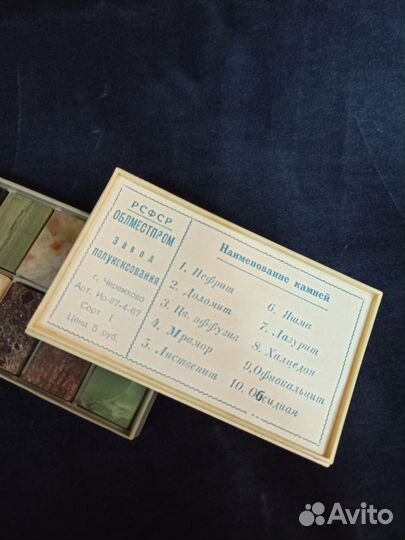 РСФСР
ОБЛМЕСТПРОМ
ЗАВОД
ПОЛУКОКСОВАНИЯ
г. Черемхово
Арт. Ир-87-4-67
Сорт I
Цена 5 руб.
Наименование камней
1. Нефрит
2. Доломит
3. Цв. эффузив
4. Мрамор
5. Лиственит
6. Яшма
7. Лазурит
8. Халцедон
9. Офиокальцит
10. Обсидиан
Avito